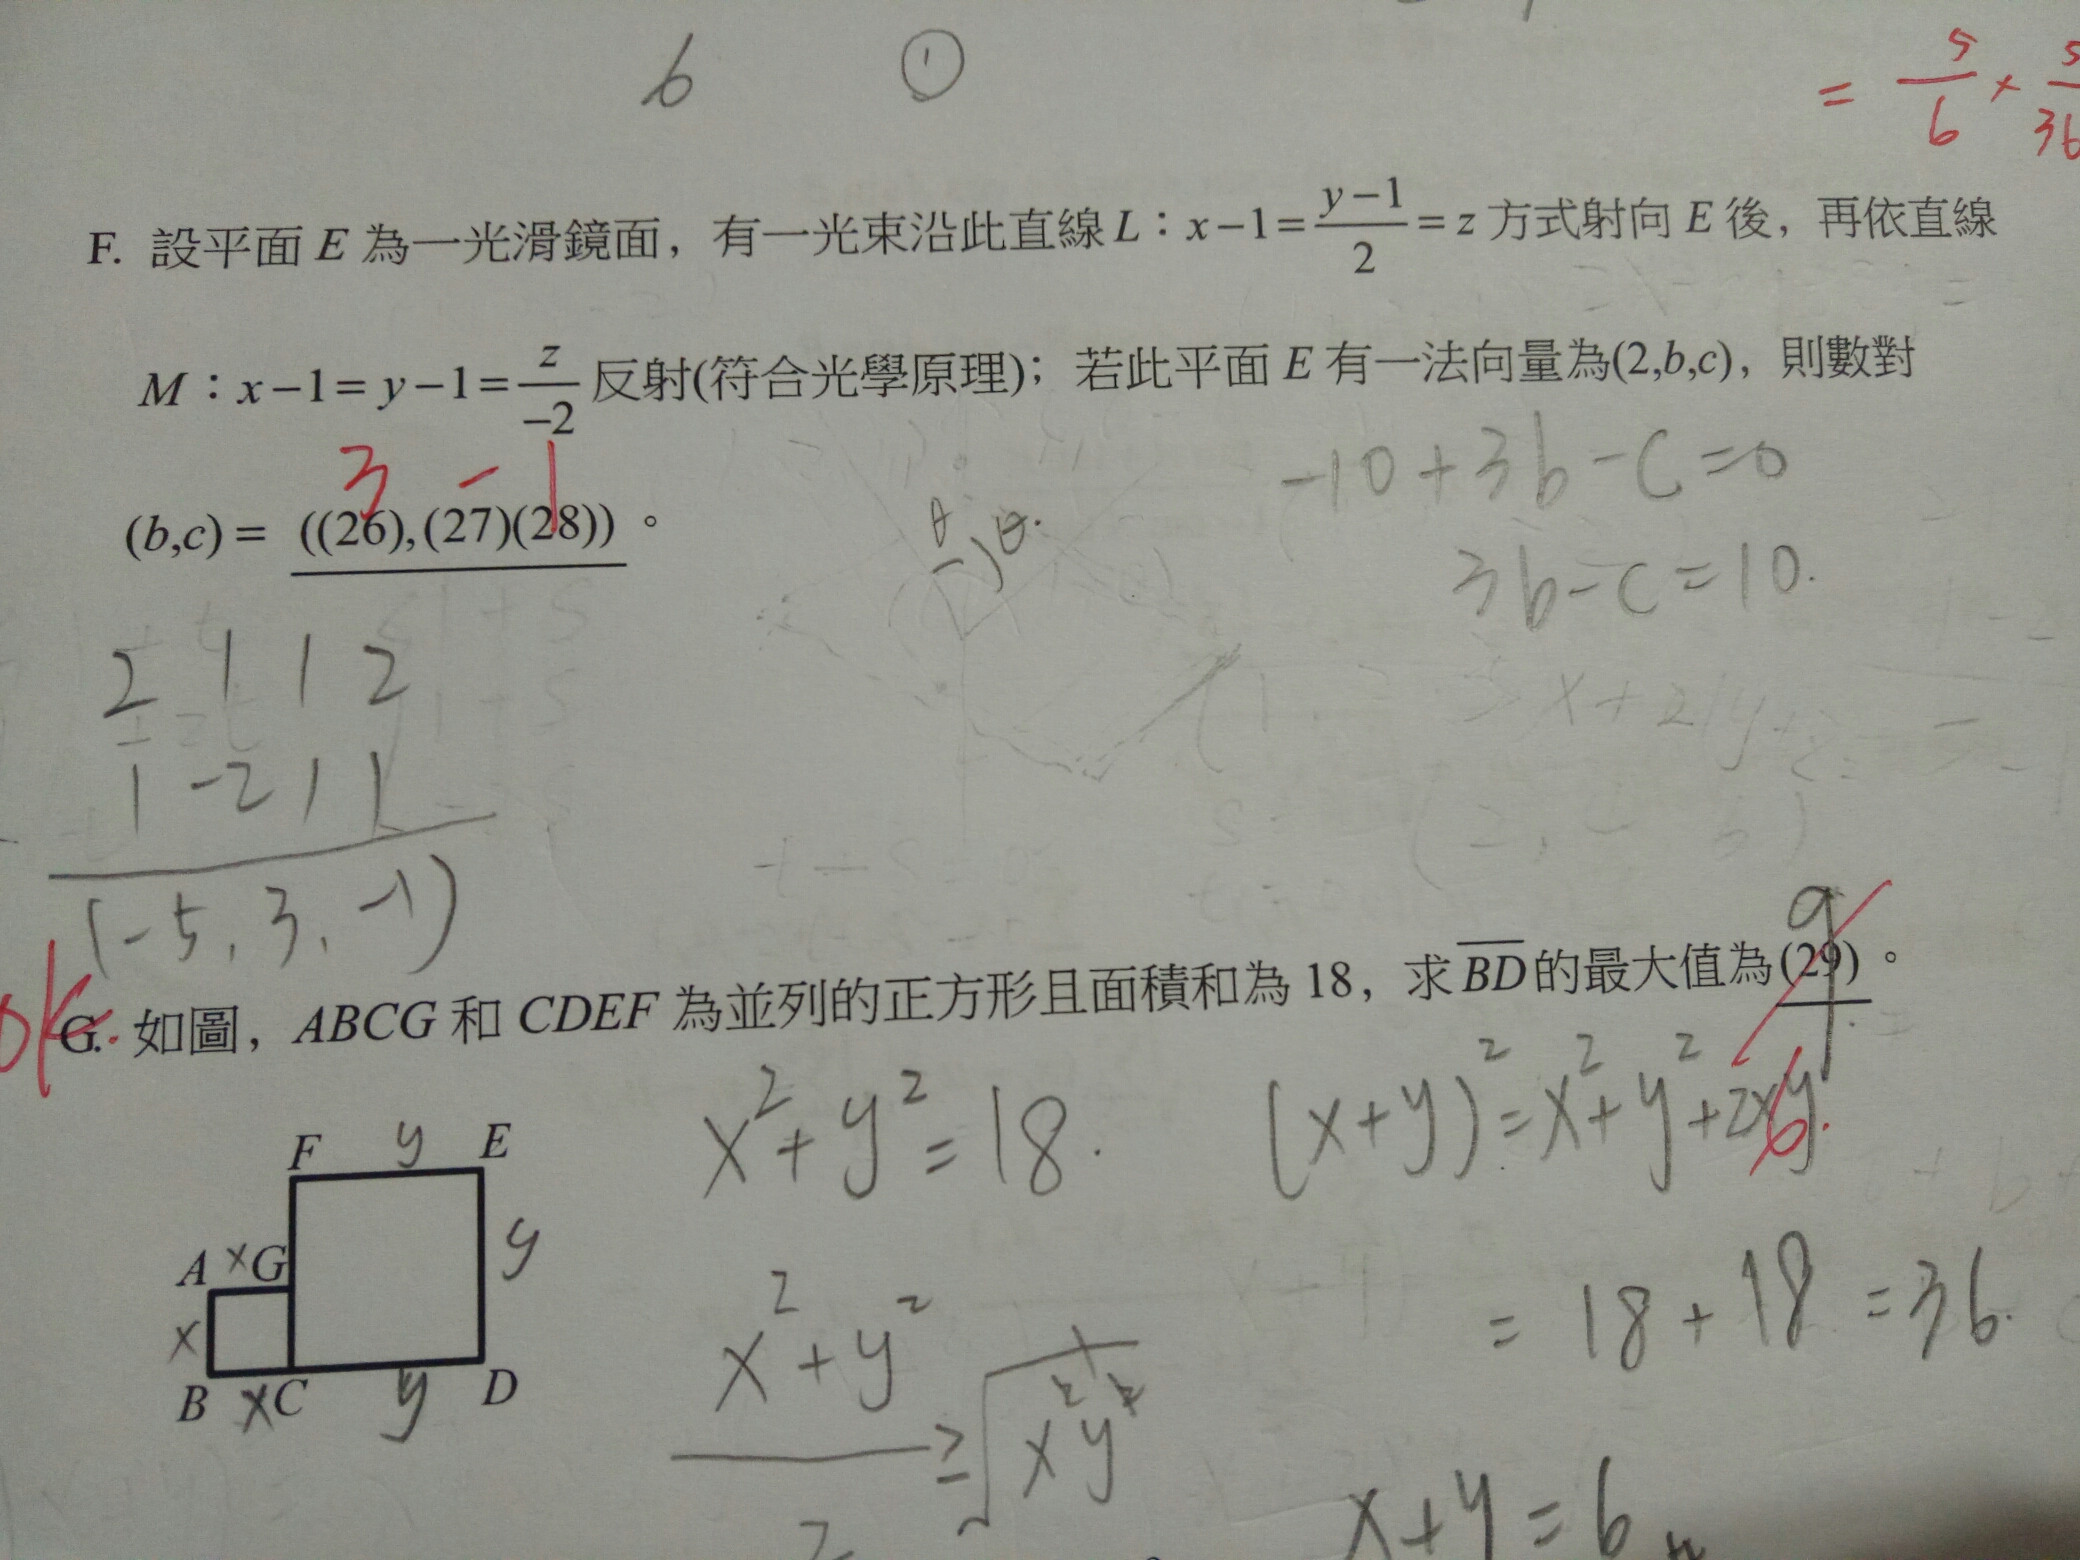 6 ①
= 5/6 × 5/36
F. 設平面 E 為一光滑鏡面，有一光束沿此直線 L：x−1=(y−1)/2=z 方式射向 E 後，再依直線
M：x−1=y−1=z/−2 反射(符合光學原理)；若此平面 E 有一法向量為(2,b,c)，則數對
3 −1
(b,c)= ((26),(27)(28)) 。
−10+3b−c=0
3b−c=10.
θ θ
2 1 1 2
1 −2 1 1
(−5, 3, −1)
ok
9
G. 如圖，ABCG 和 CDEF 為並列的正方形且面積和為 18，求BD的最大值為(29)。
6.
x²+y²=18.
(x+y)²=x²+y²+2xy
=18+18=36.
F y E
y
A x G
x
B x C y D
x²+y²/2 ≥ √x²y²
x+y=6